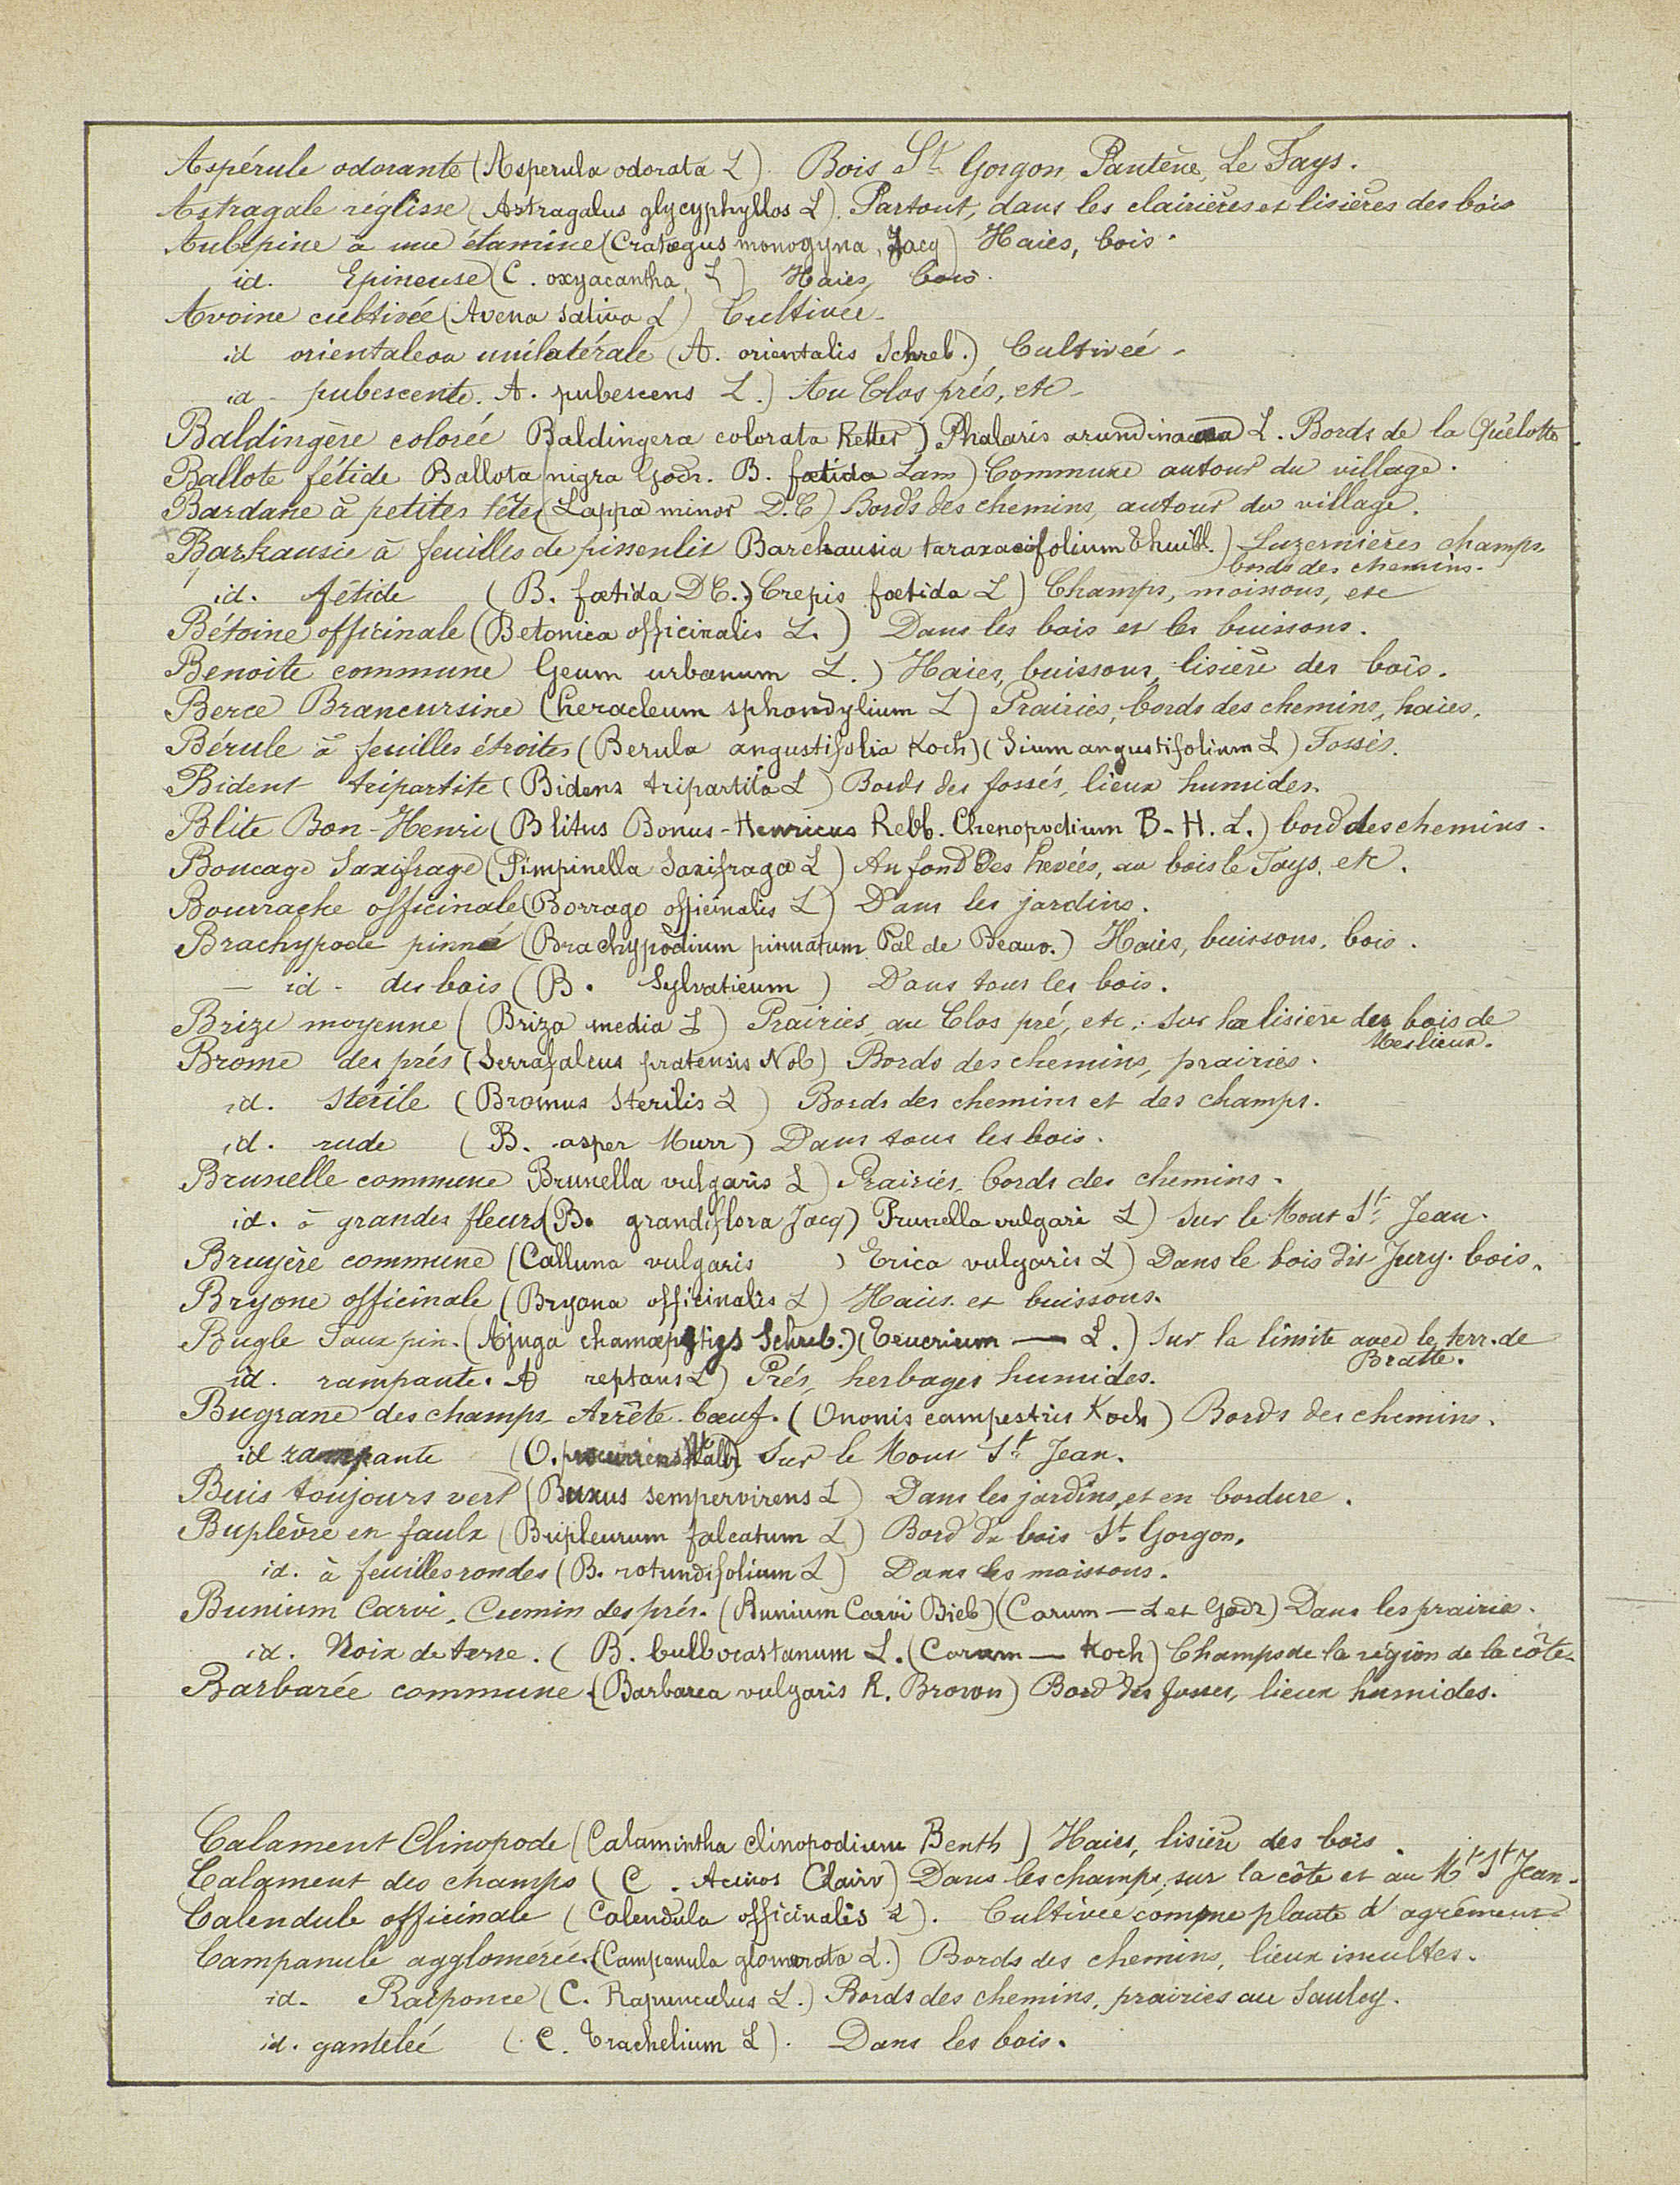 Aspérule odorante (Asperula odorata L). Bois St Gorgon, Pantène, Le Fays.
Astragale réglisse (Astragalus glycyphyllos L). Partout, dans les clairières et lisières des bois
Aubepine à une étamine (Cratægus monogyna, Jacq) Haies, bois.
id. Epineuse (C. oxyacantha, L) Haies, bois.
Avoine cultivée (Avena sativa L) Cultivée.
id orientale ou unilatérale (A. orientalis Schreb.) Cultivée.
id. pubescente. A. pubescens L.) Au Clos prés, etc.
Baldingère colorée Baldingera colorata Retter) Phalaris arundinacea L. Bords de la Quelotte.
Ballote fétide Ballota nigra Godr. B. fœtida Lam) Commune autour du village.
Bardane à petites têtes (Lappa minor D.C) Bords des chemins, autour du village.
Barkausie à feuilles de pissenlit Barchausia taraxacifolium Thuill.) Luzernières champs.
bords des chemins.
id. fétide (B. fœtida DC.) Crepis fœtida L) Champs, moissons, etc
Bétoine officinale (Betonica officinalis L.) Dans les bois et les buissons.
Benoite commune Geum urbanum L.) Haies, buissons, lisière des bois.
Berce Brancursine (heracleum sphondylium L) Prairies, bords des chemins, haies.
Bérule à feuilles étroites (Berula angustifolia Koch) (Sium angustifolium L) Fossés.
Bident tripartite (Bidens tripartita L) Bords des fossés, lieux humides.
Blite Bon-Henri (Blitus Bonus-Henricus Rebb. Chenopodium B-H. L.) bord des chemins.
Boucage Saxifrage (Pimpinella Saxifraga L) Au fond des hevées, au bois le Fays, etc.
Bourrache officinale (Borrago officinalis L) Dans les jardins.
Brachypode pinné (Brachypodium pinnatum Pal de Beauv.) Haies, buissons, bois.
— id. des bois (B. Sylvaticum) Dans tous les bois.
Brize moyenne (Briza media L) Prairies au Clos pré, etc. Sur la lisière des bois de
Meslieux.
Brome des prés (Serrafalcus pratensis Nob) Bords des chemins, prairies.
id. Stérile (Bromus Sterilis L) Bords des chemins et des champs.
id. rude (B. asper Murr) Dans tous les bois.
Brunelle commune Brunella vulgaris L) Prairies, bords des chemins.
id. à grandes fleurs (B. grandiflora Jacq) Prunella vulgari L) Sur le Mont St Jean.
Bruyère commune (Calluna vulgaris ) Erica vulgaris L) Dans le bois dit Jury. bois.
Bryone officinale (Bryona officinalis L) Haies et buissons.
Bugle Faux pin. (Ajuga chamæpytigs Schreb.) (Teucrium — L.) Sur la limite avec le terr. de
Bratte.
id. rampante. A reptans L) Prés, herbages humides.
Bugrane des champs Arrête-bœuf. (Ononis campestris Koch) Bords des chemins.
id rampante (O. procurrens Wallr) Sur le Mont St Jean.
Buis toujours vert (Buxus sempervirens L) Dans les jardins, et en bordure.
Buplèvre en faulx (Bupleurum falcatum L) Bord du bois St Gorgon.
id. à feuilles rondes (B. rotundifolium L) Dans les moissons.
Bunium Carvi, Cumin des prés. (Bunium Carvi Bieb) (Carum — L et Godr) Dans les prairies.
id. Noix de terre. (B. bulbocastanum L. (Carum — Koch) Champs de la région de la côte.
Barbarée commune (Barbarea vulgaris R. Brown) Bord des fosses, lieux humides.
Calament Clinopode (Calamintha clinopodium Benth) Haies, lisière des bois.
Calament des champs (C. Acinos Clairv) Dans les champs, sur la côte et au Mt St Jean.
Calendule officinale (Calendula officinalis L). Cultivée comme plante d'agrément
Campanule agglomérée. (Campanula glomerata L.) Bords des chemins, lieux incultes.
id. Raiponce (C. Rapunculus L.) Bords des chemins, prairies au Sauley.
id. gantelée (C. Trachelium L). Dans les bois.